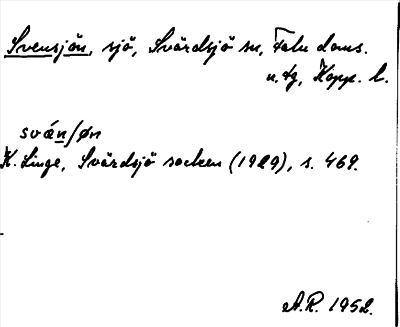 Svensjön, sjö, Svärdsjö sn, Falu doms.
u. tg, Kopp. l.
svæn/øn
K. Linge, Svärdsjö socken (1929), s. 469.
A.R. 1952.